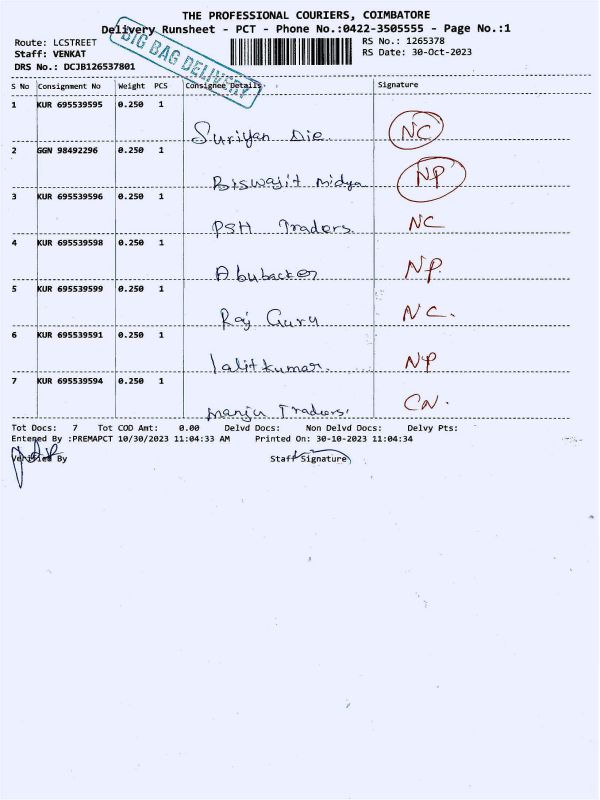 THE PROFESSIONAL COURIERS, COIMBATORE
Delivery Runsheet - PCT - Phone No.:0422-3505555 - Page No.:1
Route: LCSTREET RS No.: 1265378
Staff: VENKAT RS Date: 30-Oct-2023
DRS No.: DCJB126537801
BIG BAG DELIVERY
S No Consignment No Weight PCS Consignee Details Signature
1 KUR 695539595 0.250 1
Suriyan Die NC
2 GGN 98492296 0.250 1
Biswajit midya NP
3 KUR 695539596 0.250 1
PSH Traders. NC
4 KUR 695539598 0.250 1
Abubacker NP.
5 KUR 695539599 0.250 1
Raj Guru NC.
6 KUR 695539591 0.250 1
lalitkumar. NP
7 KUR 695539594 0.250 1
manju Traders. CN.
Tot Docs: 7 Tot COD Amt: 0.00 Delvd Docs: Non Delvd Docs: Delvy Pts:
Entered By :PREMAPCT 10/30/2023 11:04:33 AM Printed On: 30-10-2023 11:04:34
Verified By Staff Signature